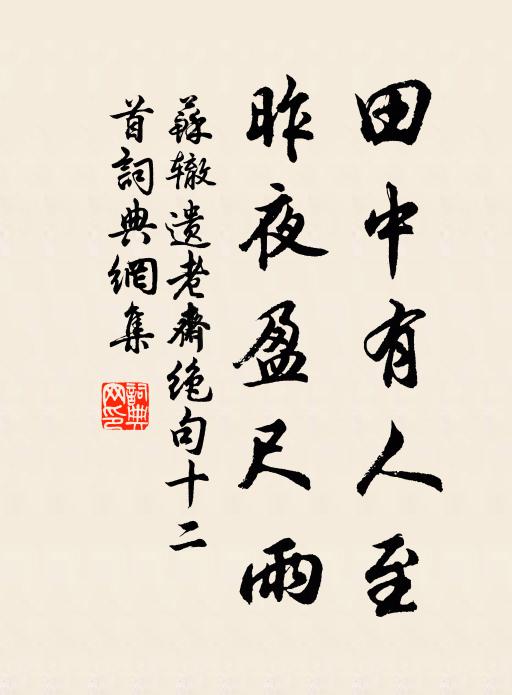 田中有人至
昨夜盈尺雨
蘇辙遺老齋绝句十二
首詞典網集
詞典网印